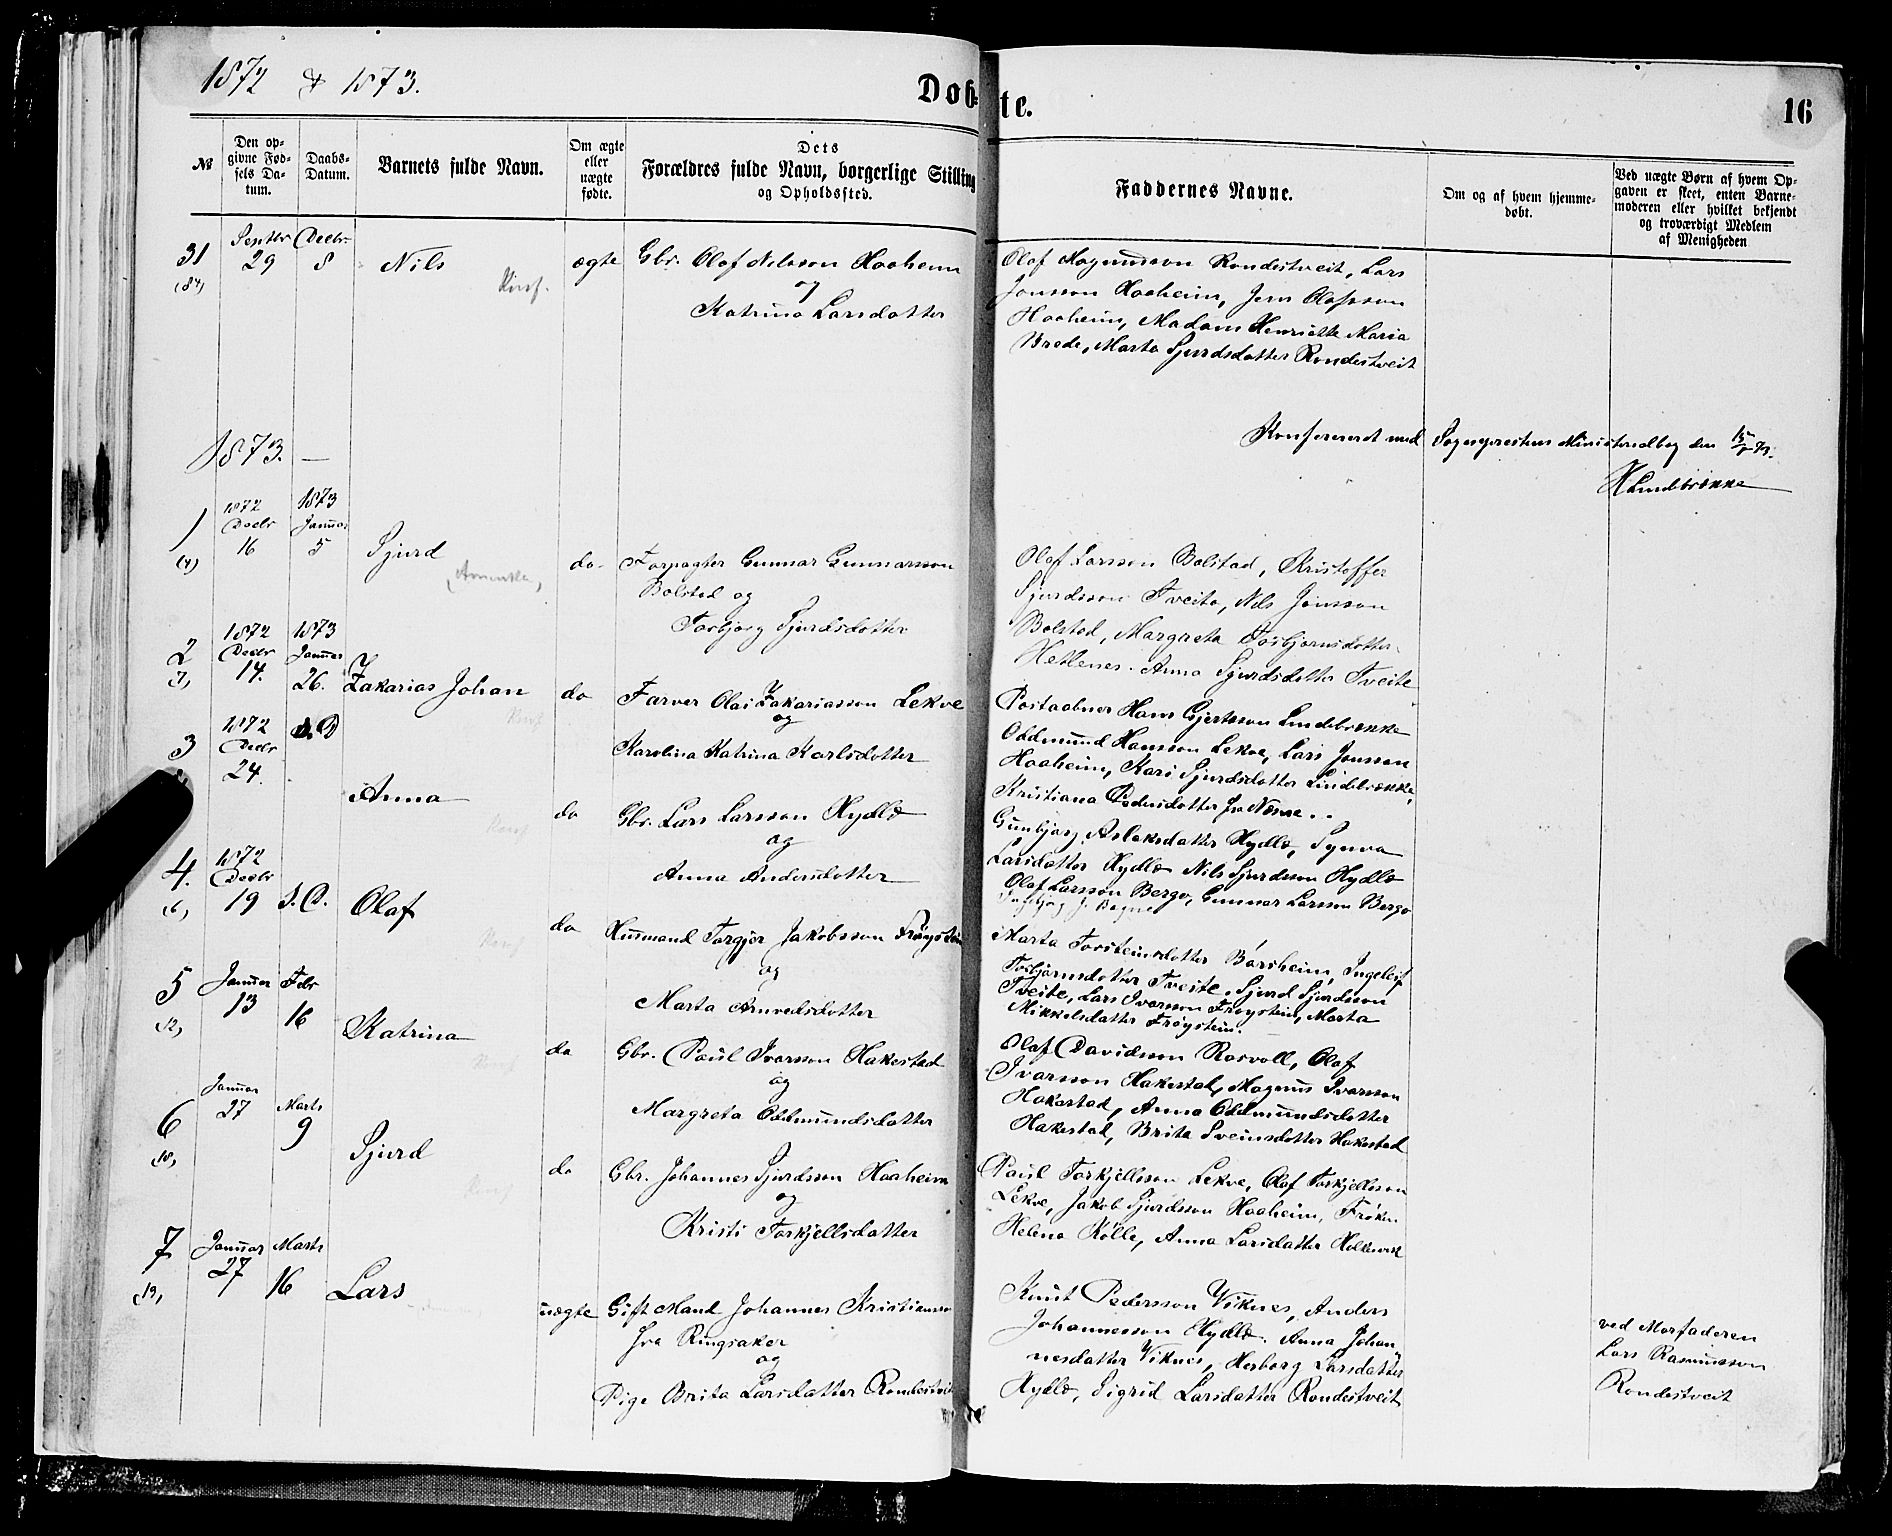 1872 & 1873.
Døb-
te.
16
No
Den op-
givne Fød-
sels Da-
tum.
Daabs-
Datum.
Barnets fulde Navn.
Om ægte
eller
uægte
fødte.
Dets
Forældres fulde Navn, borgerlige Stilling
og Opholdssted.
Faddernes Navne.
Om og af hvem hjemme-
døbt.
Ved uægte Børn af hvem Op-
gaven er skeet, enten Barne-
moderen eller hvilket bekjendt
og troværdigt Medlem
af Menigheden
31
(84)
Septbr
29
Decbr
8
Nils
Kins.
ægte
Gbr. Olaf Nilsson Haaheim
og
Katrina Larsdotter
Olaf Magnusson Rondestveit, Lars
Jonsson Haaheim, Jon Olafsson
Haaheim, Madam Henriette Maria
Brede, Marta Sjurdsdotter Rondestveit
Konfereret med Sogneprestens Ministerialbog den
HLindebrekke
1873. —
1
(4)
1872
Decbr
16
1873
Januar
5
Sjurd
do.
Forpagter Gunnar Gunnarsson
Bolstad og
Torbjorg Sjurdsdotter
Olaf Larsson Bolstad, Kristoffer
Sjurdsson Tveito, Nils Jonsson
Bolstad, Margreta Torbjornsdotter
Hetlenes. Anna Sjurdsdotter Tveite
2
7)
1872
Decbr
14.
1873
Januar
26.
Zakarias Johan
do
Farver Olai Zakariasson Lekve
og
Karolina Katrina Karlsdotter
Postaabner Hans Gjertsson Lindebrekke
Oddmund Hansson Lekve, Lars Jonsson
Haaheim, Kari Sjurdsdotter Lindebrekke,
Kristiana Pedersdotter fra Næsse..
3
1872
Decbr
24.
s.D
Anna
do
Gbr. Lars Larsson Hydle
og
Anna Andersdotter
Gunbjørg Aslaksdatter Hydle, Synva
Larsdatter Hydle Nils Sjurdsson Hydle
Olaf Larsson Bergo, Gunnar Larsson Bergo
4.
(6)
1872
Decbr
19
s.D.
Olaf
do
Husmand Torgjer Jakobsson Frøystein
og
Marta Arnvedsdotter
Marta Torsteinsdotter Børsheim, Ingeleif
Torbjørnsdotter Tveite. Sjurd Sjurdsson
Tveite, Lars Ivarsson Frøystein, Marta
Mikkelsdatter Frøystein.
5
(12)
Januar
13
Febr
16
Katrina
do
Gbr. Paul Ivarsson Hakestad
og
Margreta Oddmundsdotter
Olaf Davidsson Rosvoll, Olaf
Ivarsson Hakestad, Magnus Ivarsson
Hakestad, Anna Oddmundsdotter
Hakestad, Brita Sveinsdotter Hakestad
6
(18)
Januar
27
Marts
9
Sjurd
do
Gbr. Johannes Sjurdsson Haaheim
og
Kristi Torkjellsdatter
Paul Torkjellsson Lekve, Olaf Torkjellsson
Lekve, Jakob Sjurdsson Haaheim, Frøken
Helena Kölle, Anna Larsdatter
7
(19)
Januar
27
Marts
16
Lars
uægte
Gift Mand Johannes Kristiansson
fra Ringsaker
og
Pige Brita Larsdatter Rondestveit
Knut Pedersson Viknes, Anders
Johannesson Hydle. Anna Johan
nesdatter Viknes, Herborg Larsdatter
Hydle, Sigrid Larsdatter Rondestveit
ved Morfaderen
Lars Rasmusson
Rondestveit